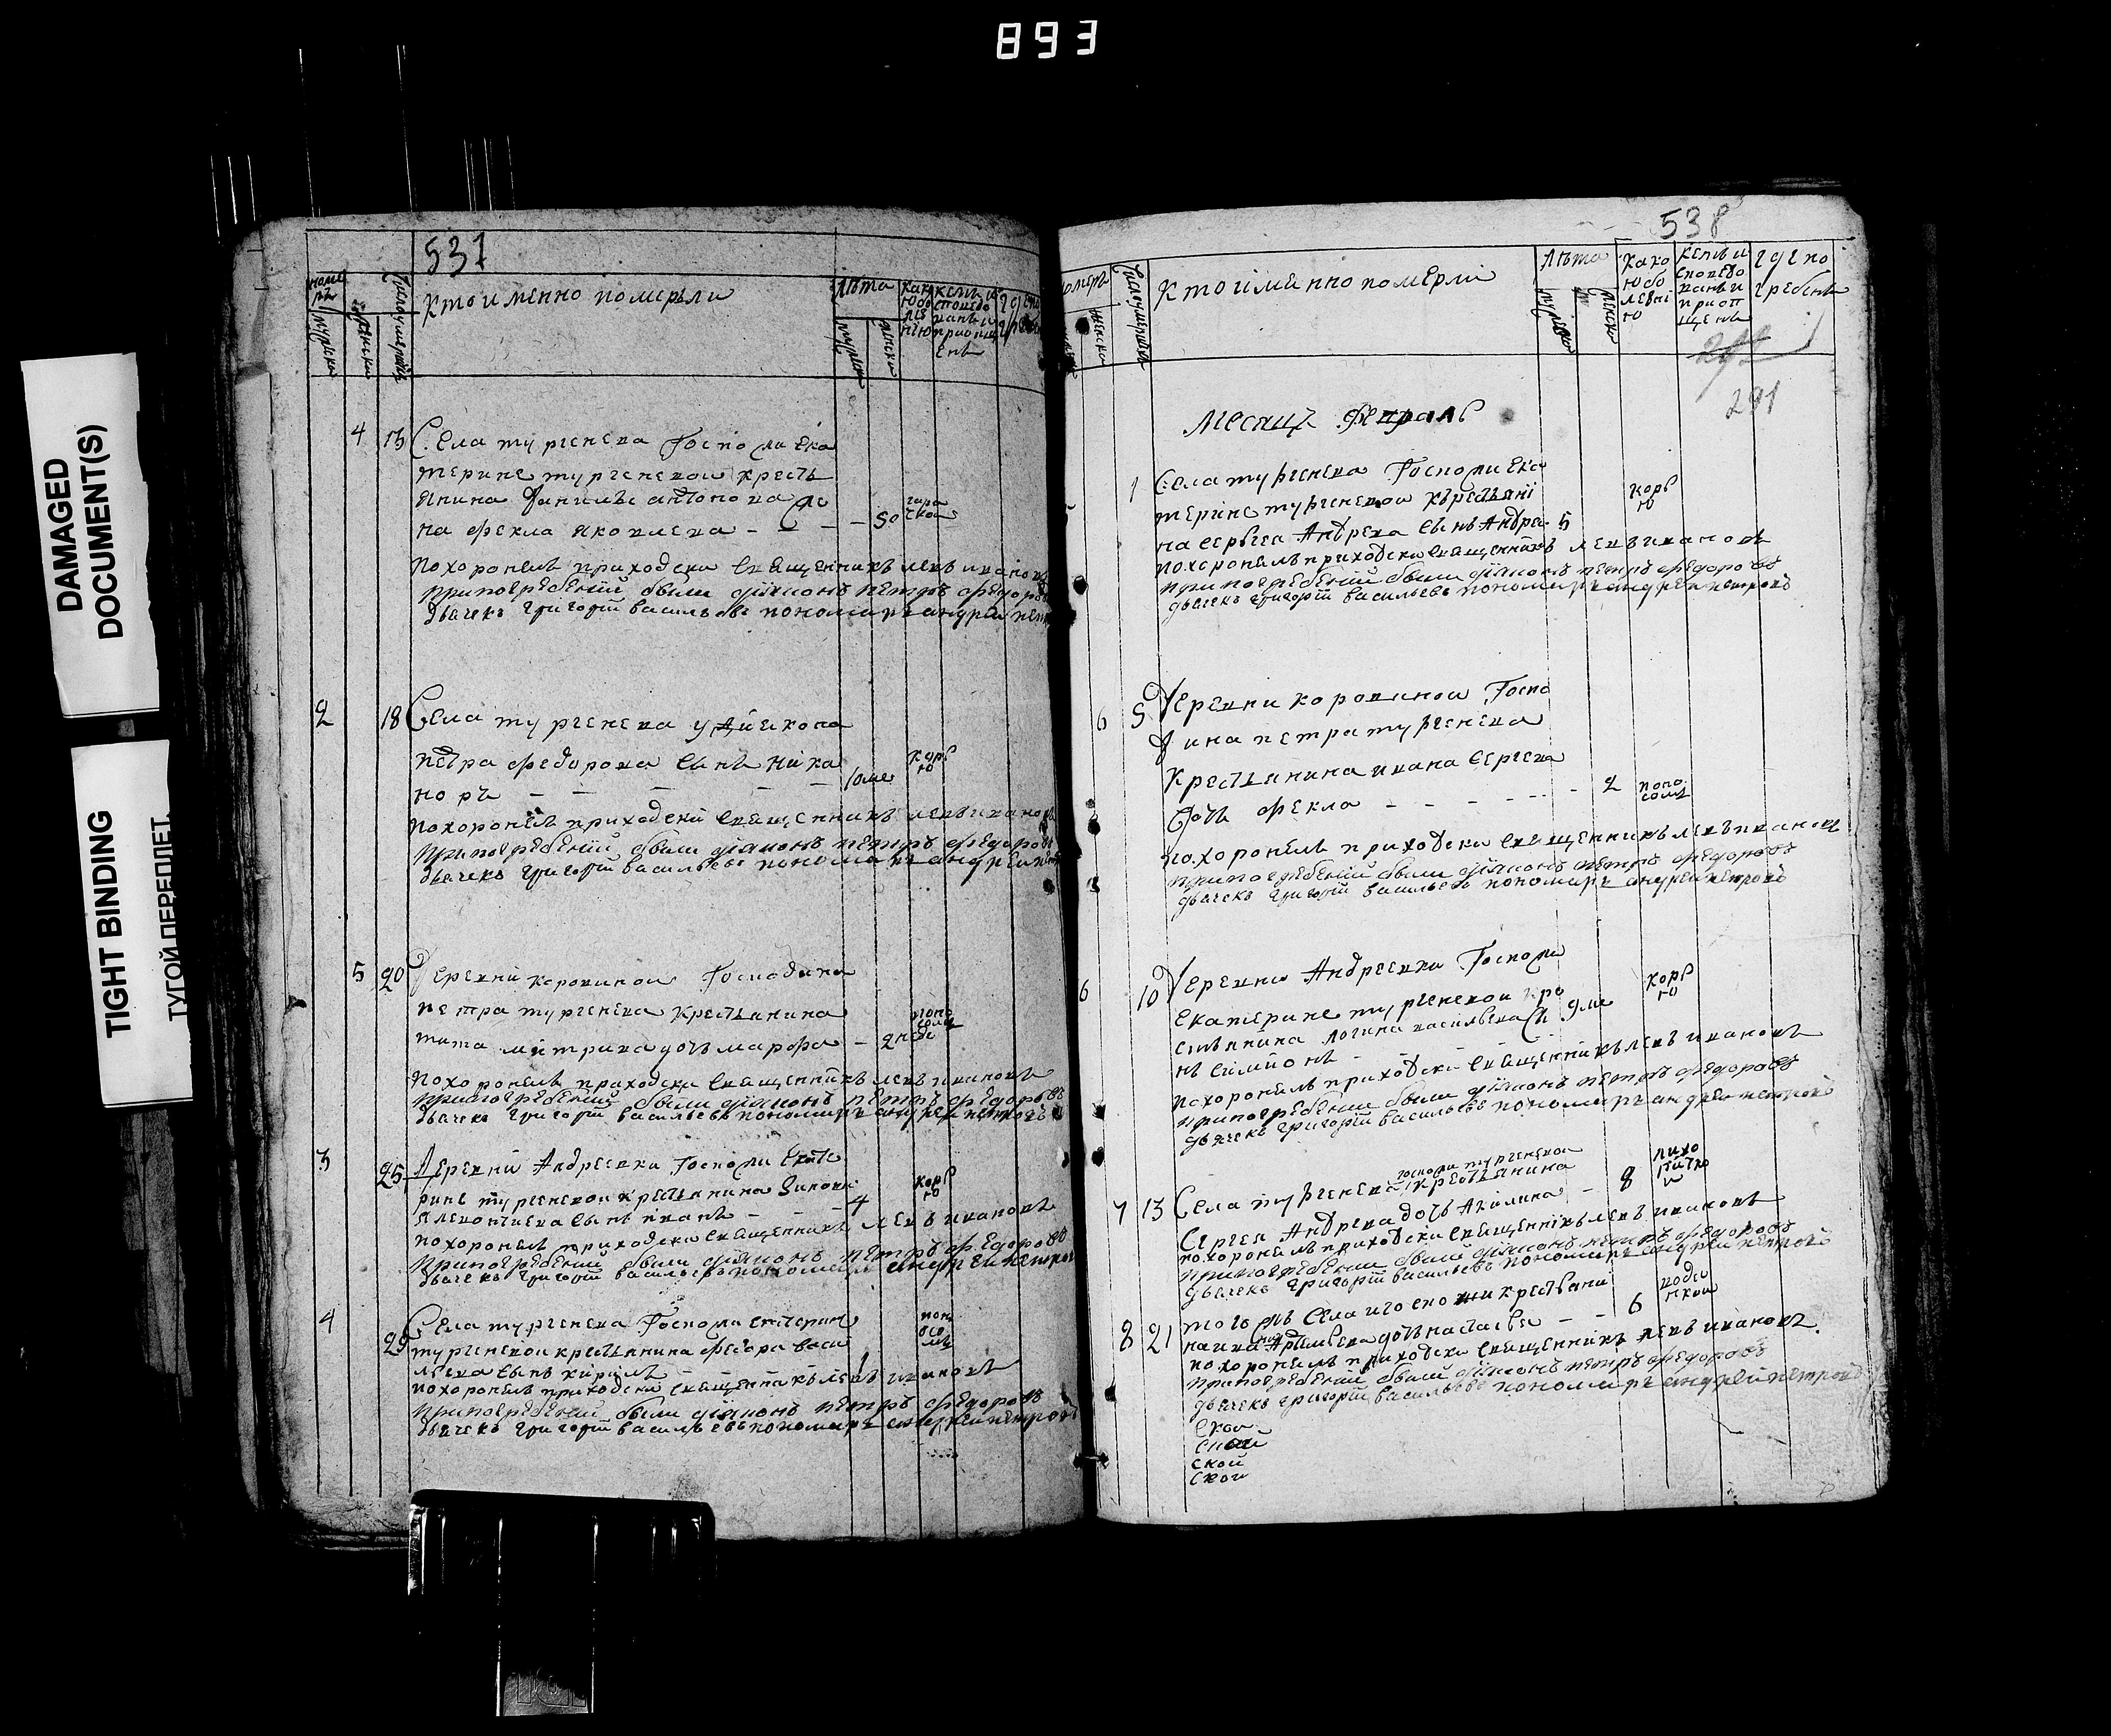 893
DAMAGED
DOCUMENT(S)
TIGHT BINDING
ТУГОЙ ПЕРЕПЛЕТ
537
Кто именно померъли
Лѣта
4 13 Села тургенева Госпожи Ека
терине тургеневои кресть
янина Данилы антонова же
на фекла яковлева - - - 50
похоронелъ приходски священникъ левъ иванов
припогребении были диаконъ петръ федоров
дьячекъ григорий васильевъ пономарь андрей
2 18 Села тургенева у диякона
петра федорова сынъ Ника
норъ - - - - - 10 ме корью
похоронелъ приходски священникъ левъ иванов
припогребении были диаконъ петръ федоров
дьячекъ григорий васильевъ пономарь андрей
5 20 Деревни коровинои Господина
петра тургенева крестьянина
тита митрива дочь марфа - 2 неде
похоронелъ приходски священникъ левъ ивановъ
припогребении были диаконъ петръ федоровъ
дьячекъ григорий васильевъ пономарь андрей петровъ
3 25 Деревни Андреевки Госпожи Екате
рине тургеневои крестьянина Зинови
я левонтиева сынъ иванъ - - 4 корью
похоронелъ приходски священникъ левъ ивановъ
припогребении были диаконъ петръ федоровъ
дьячекъ григорий васильевъ пономарь андрей петров
4 29 Села тургенева Госпожи екатерин
тургеневои крестьянина федора васи
льева сынъ кирилъ - 1
похоронелъ приходски священникъ левъ ивановъ
припогребении были диаконъ петръ федоровъ
дьячекъ григорий васильевъ пономарь андрей петров
538
Кто имянно померли
Лѣта
како
ю бо
лезні
ю
кемъ и
споведо
ванъ и
приоп
щенъ
где по
гребенъ
291
Месяцъ Февраль
1 Села тургенева Госпожи Ека
терине тургеневои кърестьяни
на сергея Андрева сынъ Андре 5 корью
похоронелъ приходски священникъ левъ ивановъ
припогребении были диаконъ петръ федоровъ
дьячекъ григорий васильевъ пономарь андрей петровъ
6 5 Деревни коровинои Госпо
дина петра тургенева
крестьянина ивана сергева
дочь фекла - - - - - 2
похоронелъ приходски священникъ левъ ивановъ
припогребении были диаконъ петръ федоровъ
дьячекъ григорий васильевъ пономарь андрей петровъ
6 10 Деревни Андреевки Госпожи
екатерине тургеневои кре
стьянина логина васильева сы 9 ме корью
нъ симионъ - - -
похоронелъ приходски священникъ левъ ивановъ
припогребении были диаконъ петръ федоровъ
дьячекъ григорий васильевъ пономарь андрей петровъ
госпожи тургеневои
7 13 Села тургенева крестьянина
Сергея Андрева дочь Акилина - 8
похоронелъ приходски священникъ левъ ивановъ
припогребении были диаконъ петръ федоровъ
дьячекъ григорий васильевъ пономарь андрей петровъ
8 21 того жъ Села и госпожи крестьяни
дочь настасья - - 6
похоронелъ приходски священникъ левъ ивановъ
припогребении были диаконъ петръ федоровъ
дьячекъ григорий васильевъ пономарь андрей петровъ
скои
скои
скои
скои